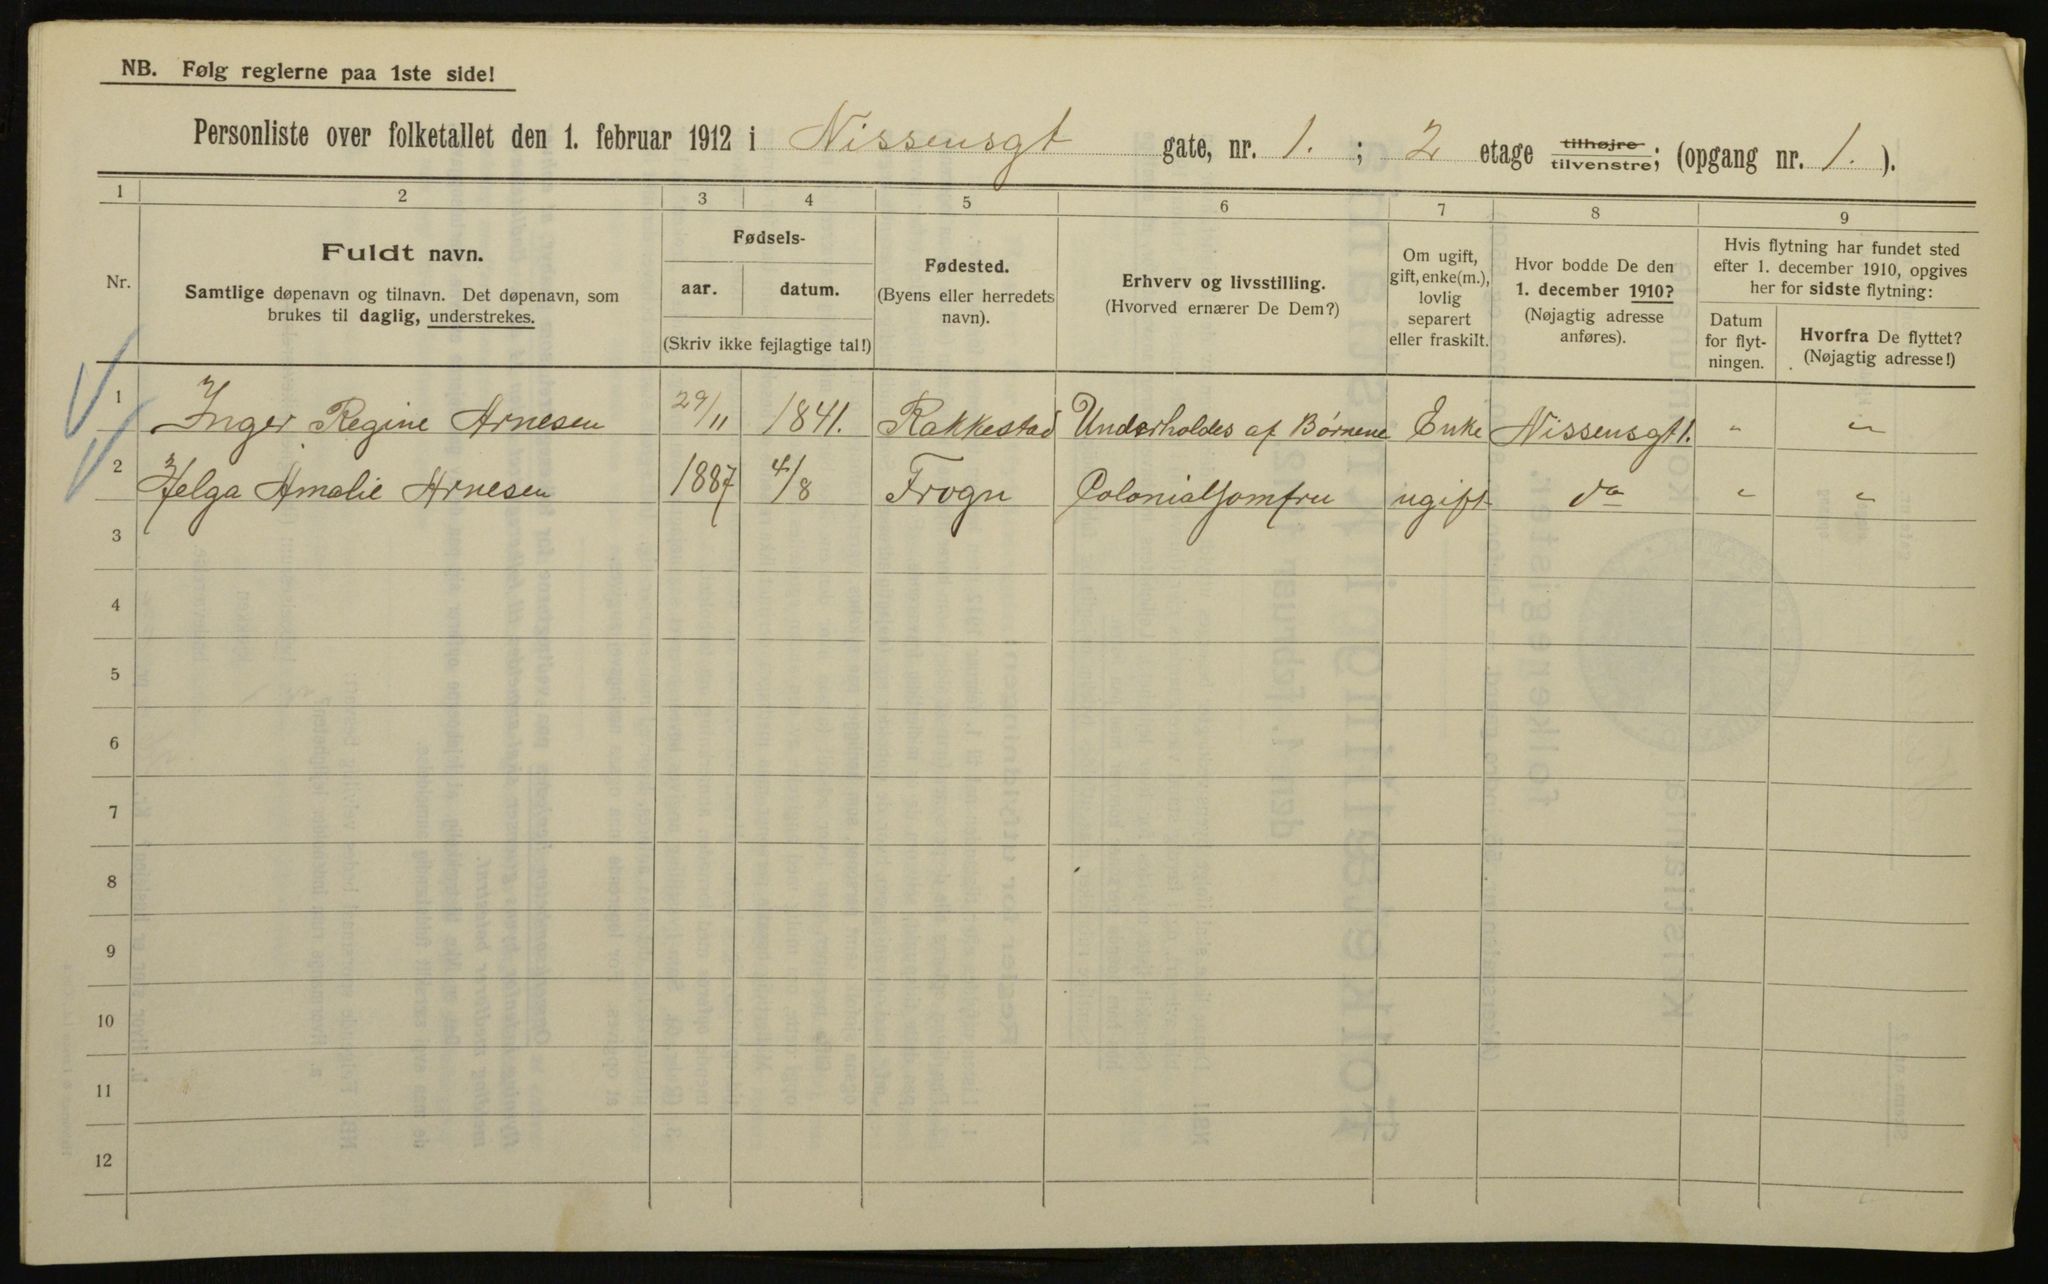 NB. Følg reglerne paa 1ste side!
Personliste over folketallet den 1. februar 1912 i Nissensgt gate, nr. 1. ; 2 etage tilhøjre tilvenstre; (opgang nr. 1. ).
1 2 3 4 5 6 7 8 9
Nr.
Fuldt navn.
Samtlige døpenavn og tilnavn. Det døpenavn, som
brukes til daglig, understrekes.
Fødsels-
aar. datum.
(Skriv ikke fejlagtige tal!)
Fødested.
(Byens eller herredets
navn).
Erhverv og livsstilling.
(Hvorved ernærer De Dem?)
Om ugift,
gift, enke(m.),
lovlig
separert
eller fraskilt.
Hvor bodde De den
1. december 1910?
(Nøjagtig adresse
anføres).
Hvis flytning har fundet sted
efter 1. december 1910, opgives
her for sidste flytning:
Datum
for flyt-
ningen.
Hvorfra De flyttet?
(Nøjagtig adresse!)
1 Inger Regine Arnesen 29/11 1841. Rakkestad Underholdes af Børnene Enke Nissensgt 1. " "
2 Helga Amalie Arnesen 1887 4/8 Frogn Colonialjomfru ugift do " "
3
4
5
6
7
8
9
10
11
12